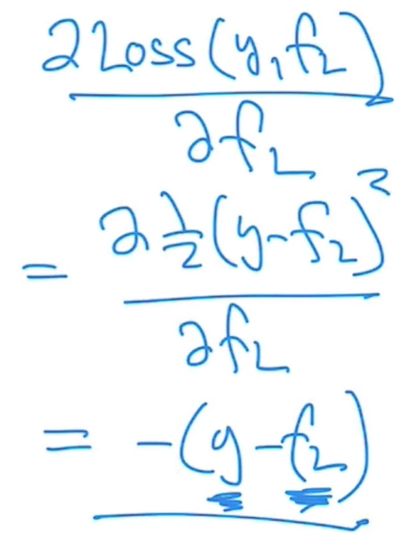 ∂Loss(y,f₂)
∂f_L
= ∂½(y-f₂)²
∂f_L
= -(y-f₂)